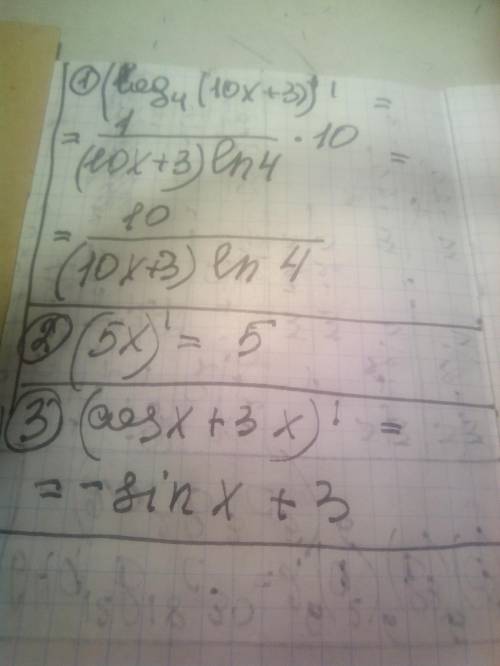 ① (log₄ (10x+3))' =
= 1/((10x+3) ln 4) · 10 =
= 10/((10x+3) ln 4)
② (5x)' = 5
③ (cos x + 3x)' =
= - sin x + 3